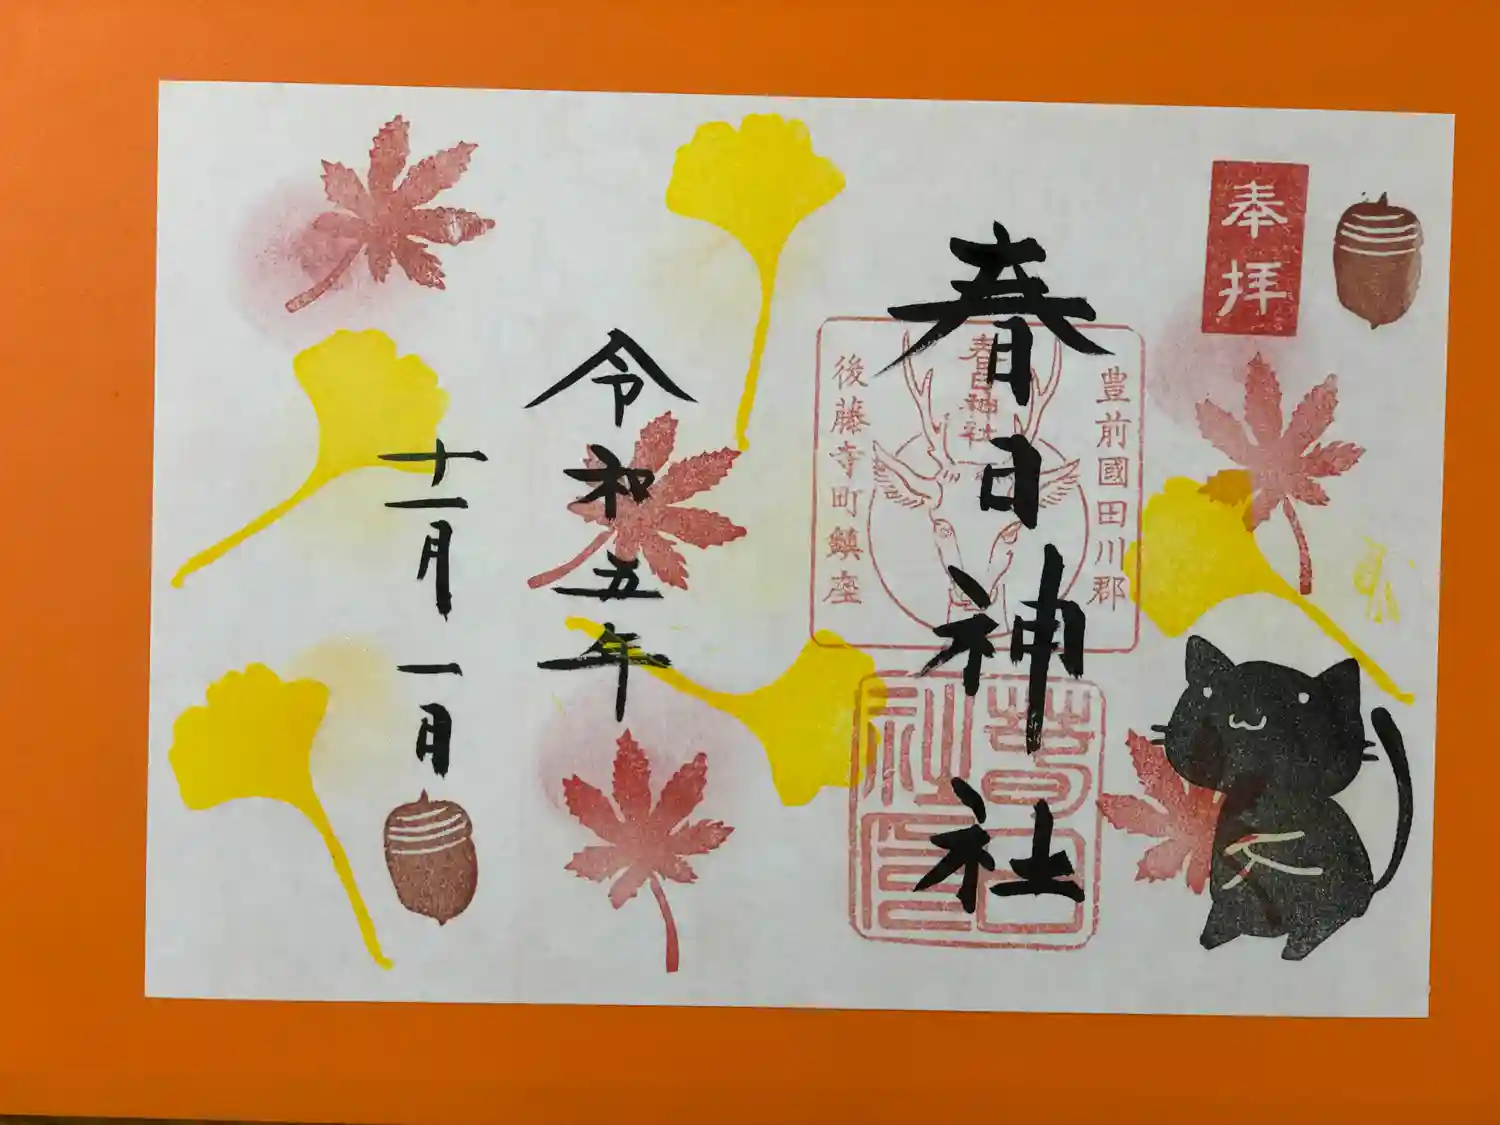 奉拝
豊前國田川郡
春日神社
春日神社
後藤寺町鎮座
春日社印
令和五年
十一月一日